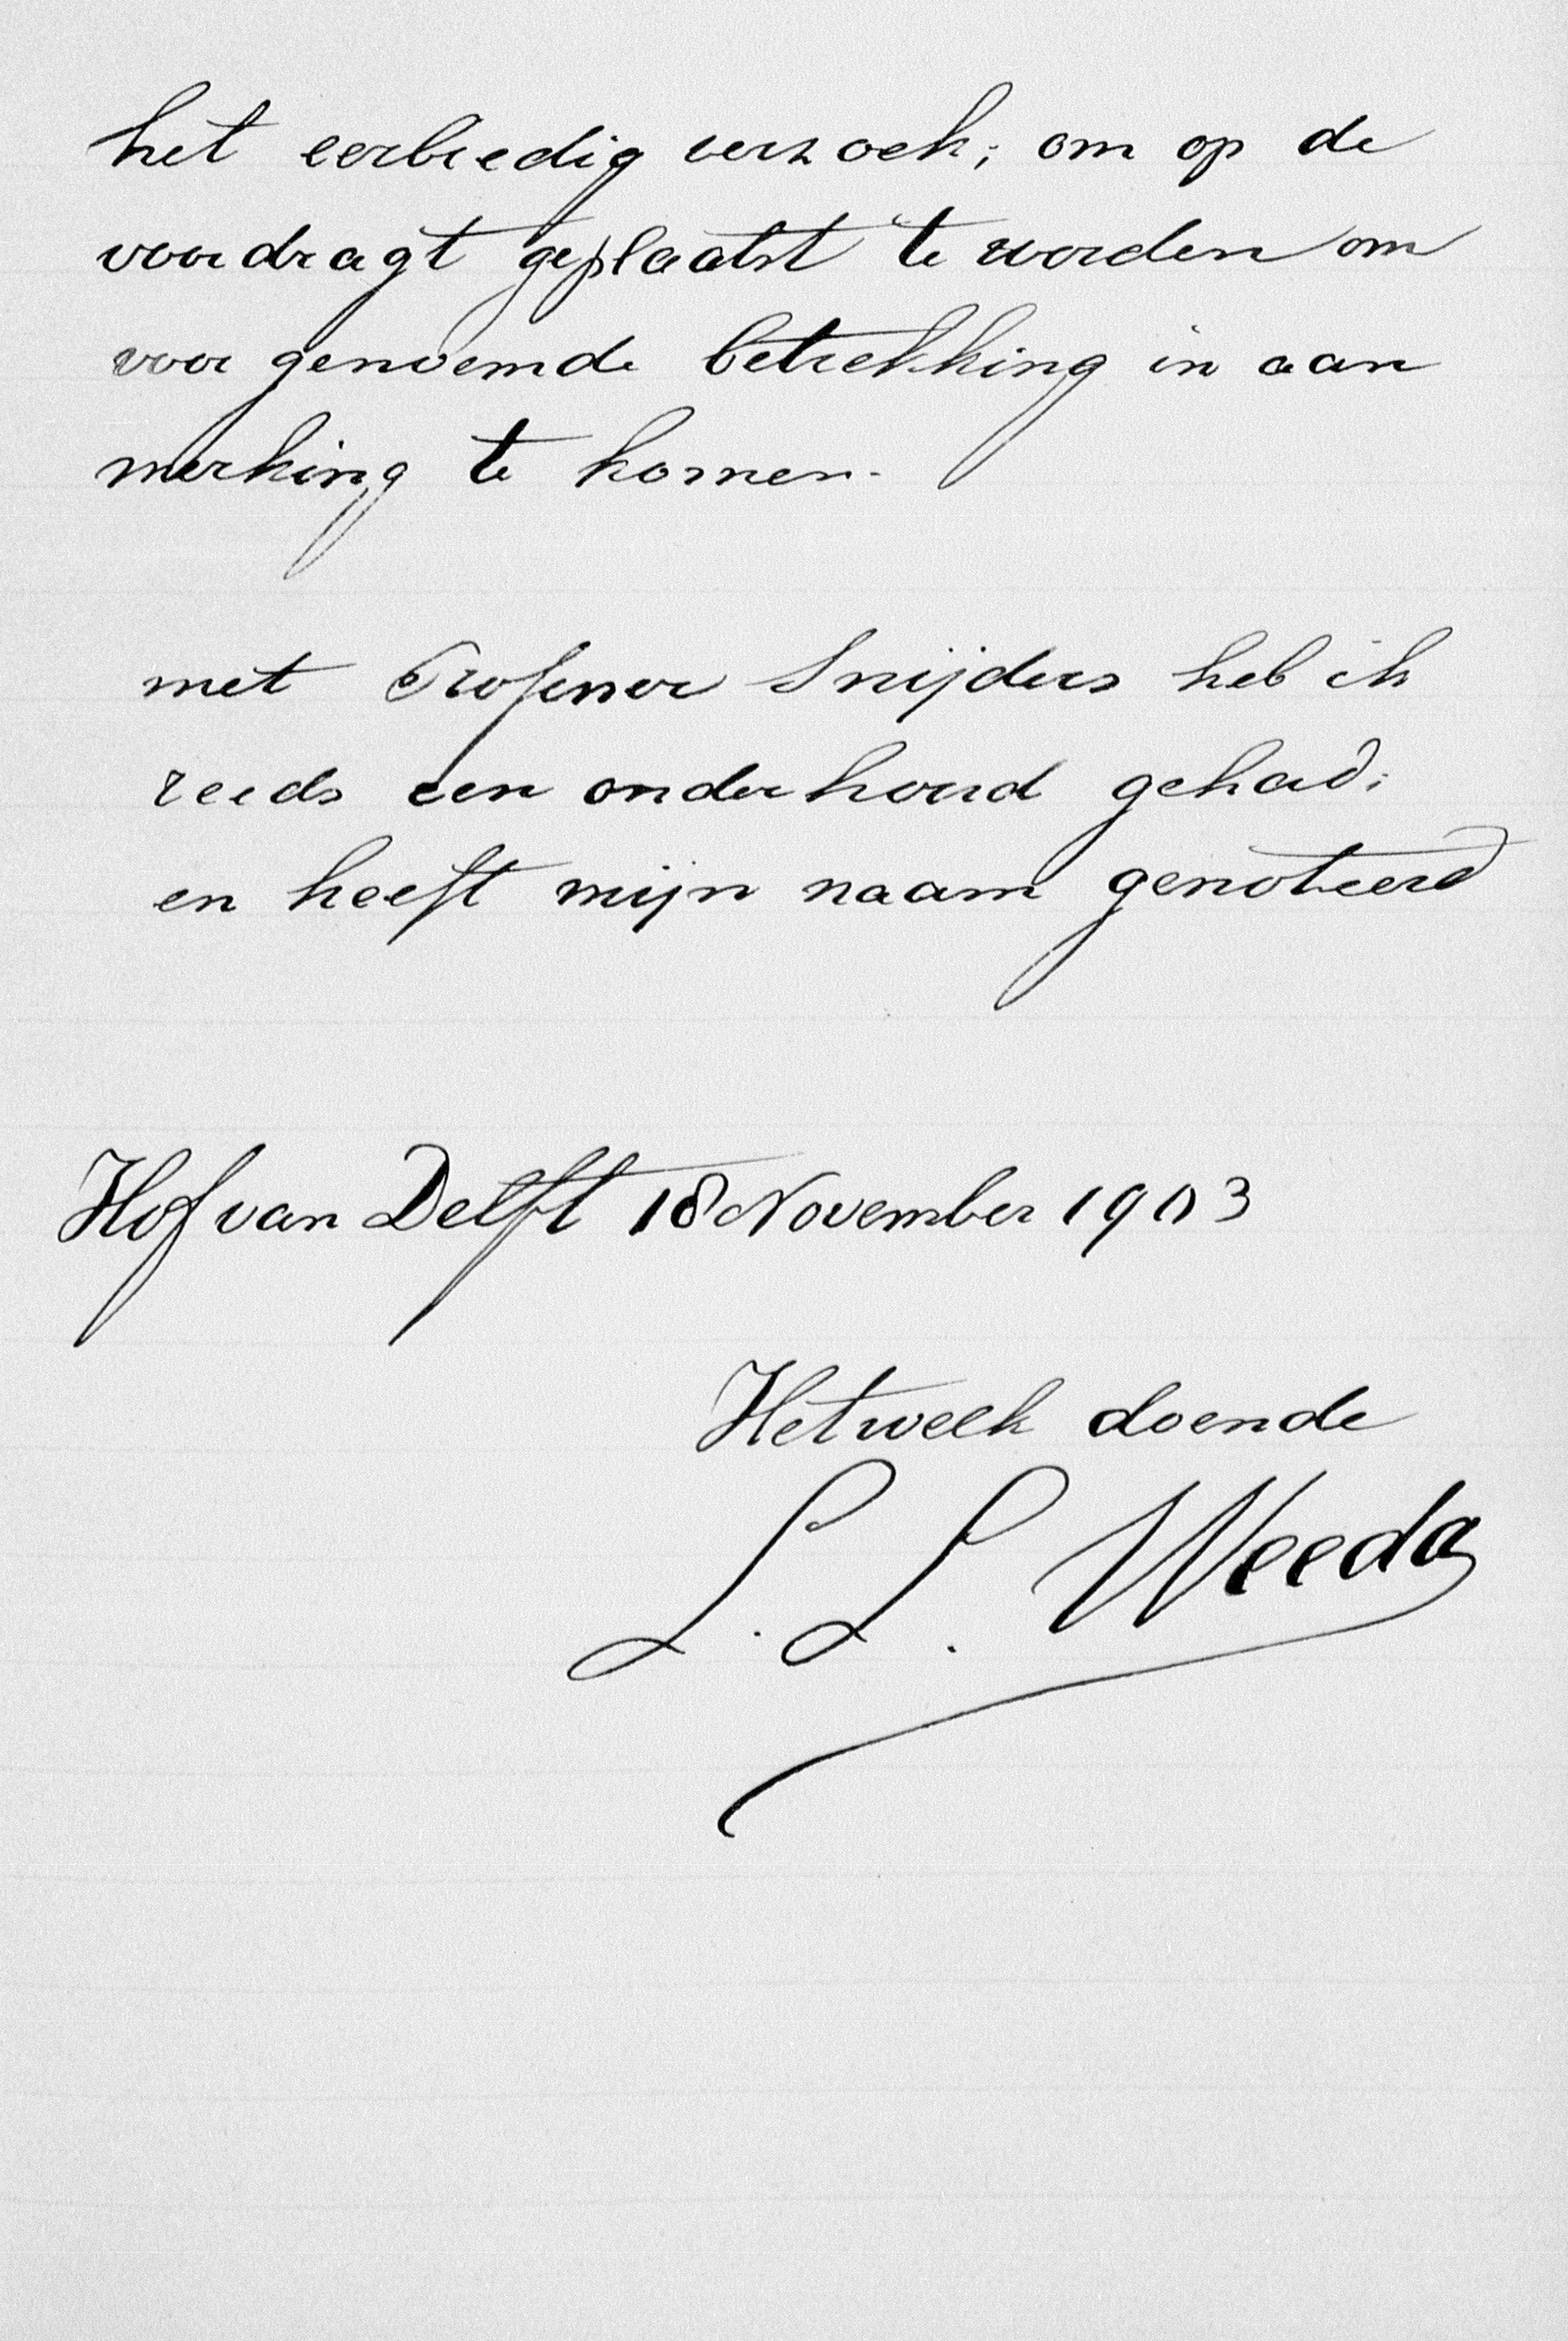 het eerbiedig verzoek; om op de
voordragt geplaatst te worden om
voor genoemde betrekking in aan
merking te komen.
met Professor Snijders heb ik
reeds een onderhoud gehad;
en heeft mijn naam genoteerd
Hof van Delft 18 November 1903
Hetwelk doende
L. L. Weeda